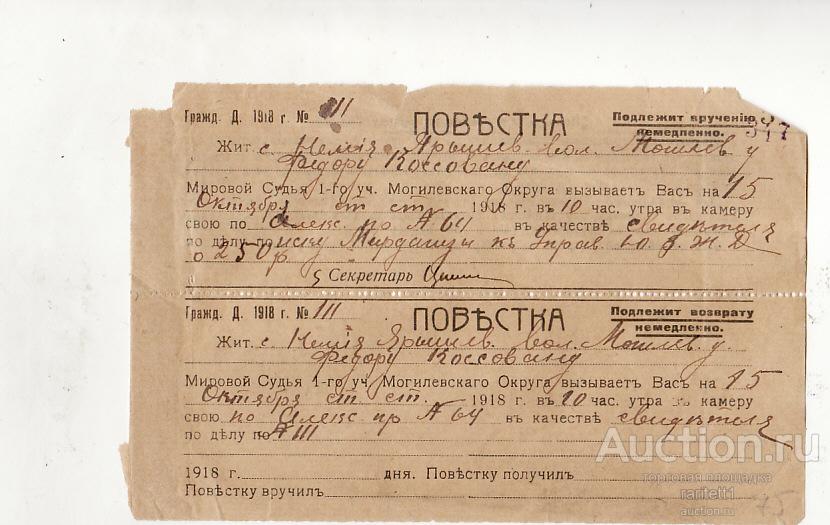 Гражд. Д. 1918 г. № 111
ПОВѢСТКА
Подлежит вручению
немедленно.
347
Жит. с. Немія Ярышев. вол. Могилев у
Федору Коссовану
Мировой Судья 1-го уч. Могилевскаго Округа вызываетъ Васъ на 15
Октября ст ст 1918 г. въ 10 час. утра въ камеру
свою по Алекс. пр А 64 въ качествѣ свидѣтеля
по дѣлу по иску к Управ. Ю. З. Ж. Д
о 250 р
Секретарь
Гражд. Д. 1918 г. № 111
ПОВѢСТКА
Подлежит возврату
немедленно.
Жит. с. Немія Ярышев. вол. Могилев у.
Федору Коссовану
Мировой Судья 1-го уч. Могилевскаго Округа вызываетъ Васъ на 15
Октября ст. ст. 1918 г. въ 10 час. утра въ камеру
свою по Алекс. пр А 64 въ качествѣ свидѣтеля
по дѣлу по 111
1918 г. дня. Повѣстку получил
Повѣстку вручил
75
Auction.ru
торговая площадка
raritett1
auction.ru